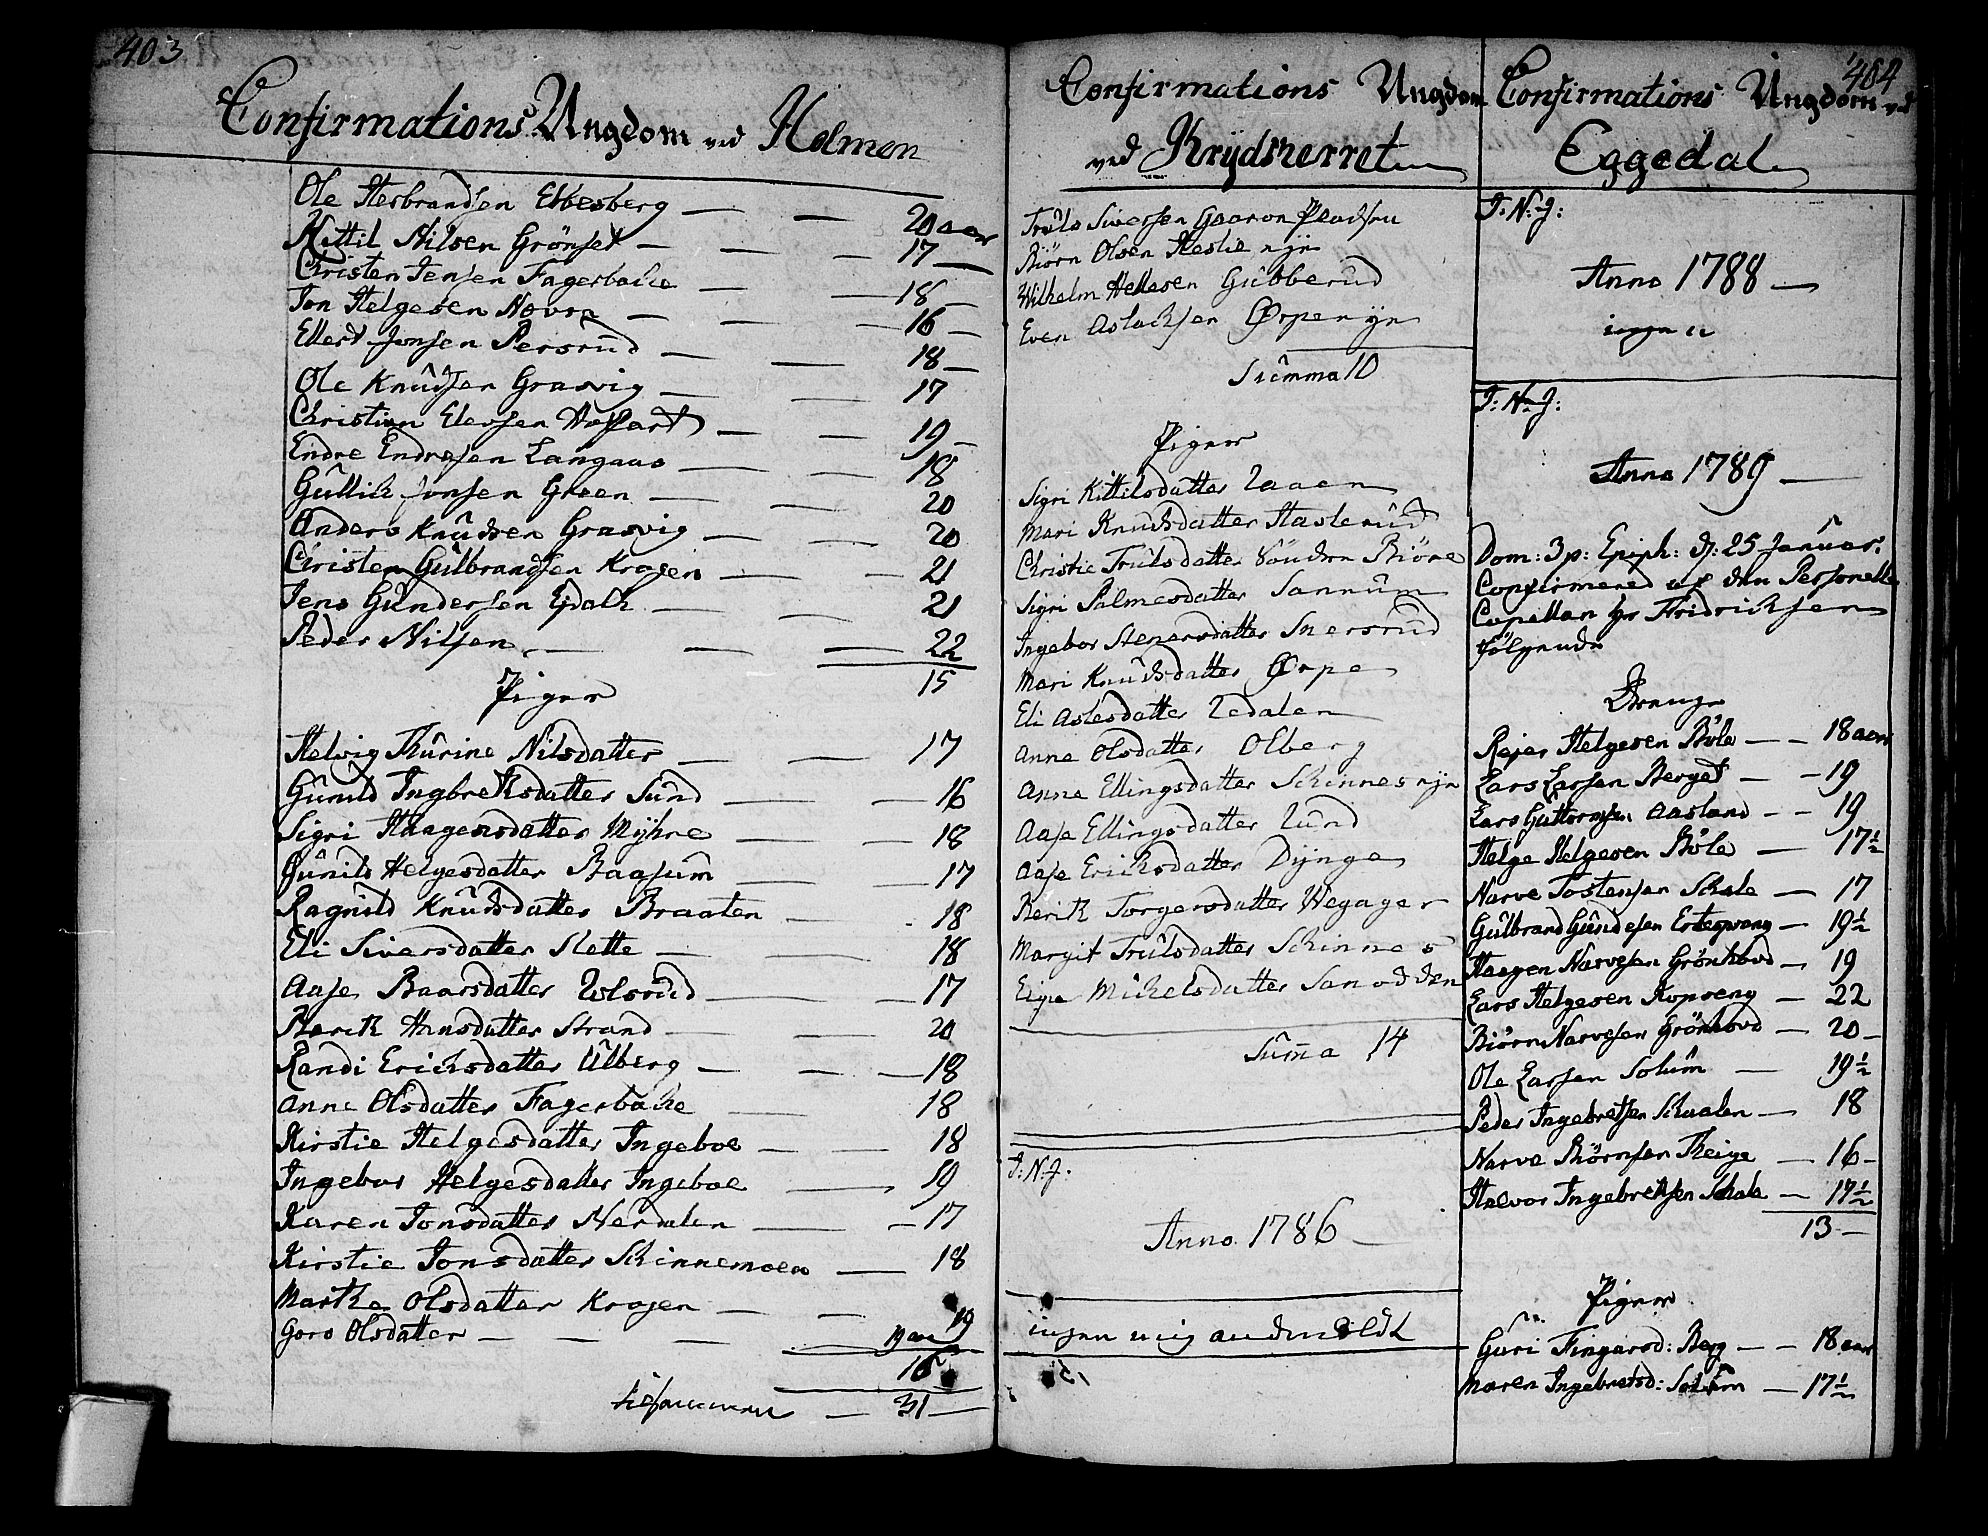 403
Confirmations Ungdom ved Holmen
Ole Herbrandsen Ebbesberg — — 20 aar
Kittil Nilsen Grönset — — 17 —
Christen Jensen Fagerbache — — 18 —
Jon Helgesen Movon — — 16 —
Ellert Jonsen Persrud — — 18 —
Ole Knudsen Grasvig — — 17
Christian Elersen — — 19 —
Endre Endresen Langaas — — 18
Gullich Jonsen Green — — 20
Anders Knudsen Grasvig — — 20
Christen Gulbrandsen Kragen — — 21
Jens Gundersen — — 21
Peder Nilsen — — 22
15
Piger
Helvig Thurine Nilsdatter — — 17
Gunild Ingbrethsdatter Sund — — 16
Sigri Haagensdatter Myhre — — 18
Gunild Helgesdatter Baasum — — 17
Ragnild Knudsdatter Braaten — — 18
Eli Siversdatter Slette — — 18
Aase Baarsdatter Ulsrud — — 17
Berith Hansdatter Strand — — 20
Randi Erichsdatter Ulberg — — 18
Anne Olsdatter Fagerbache — — 18
Kirstie Helgesdatter Ingeboe — — 18
Ingebor Helgesdatter Ingeboe — — 19
Karen Jonsdatter Nerdalen — — 17
Kirstie Jonsdatter Skinnemoen — 18
Marthe Olsdatter Kragen — — 19
Goro Olsdatter — — — 19 aar
16
tilsammen — 31 —
Confirmations Ungdom
ved Krydsherret
Truls Siversen Gaaron Pladsen
Biörn Olsen Heslie nyn
Wilhelm Hellesen Gubberud
Even Aslachsen Ørpen yn
Summa 10
Piger
Sigri Kittilsdatter Laaen
Mari Knudsdatter Haslerud
Christie Trulsdatter Söndre Biöre
Sigri Palmesdatter Sannum
Ingebor Stenersdatter Snersrud
Mari Knudsdatter Ørpe
Eli Aslesdatter Ledalen
Anne Olsdatter Olberg
Anne Ellingsdatter Schinnes nyn
Aase Ellingsdatter Lund
Aase Erichsdatter Dynge
Berith Torgersdatter Wegager
Margit Trulsdatter Schinnes
Michelsdatter Sanodden
Summa 14
J: N: J:
Anno 1786 —
ingen
404
Confirmations Ungdom ved
Eggedal
J: N: J:
Anno 1788 —
ingen
J: N: J:
Anno 1789 —
Dom: 3 p: Epiph: d: 25 Januar:
Confirmered af den Personelle
Capellan hr Fridrichsen
fölgende
Drenge
Rejer Helgesen Böle — — 18 aar
Lars Larsen Berget — — 19
Lars Guttormsen Aasland — — 19
Helge Helgesen Böle — 17½
Narve Tostensen Schale — 17
Gulbrand Gundesen Ertespreng — 19½
Haagen Narvesen Grönhovd — 19
Lars Helgesen Kopseng — 22
Biörn Narvesen Grönhovd — 20 —
Ole Larsen Solum — 19½
Peder Ingebretsen Schaalen — 18
Narve Biörnsen Theige — 16 —
Halvor Ingebrethsen Schale — 17½
13 —
Piger
Guri Fingarsd: Berg — — 18 aar
Maren Ingebretsd: Solum — 17½